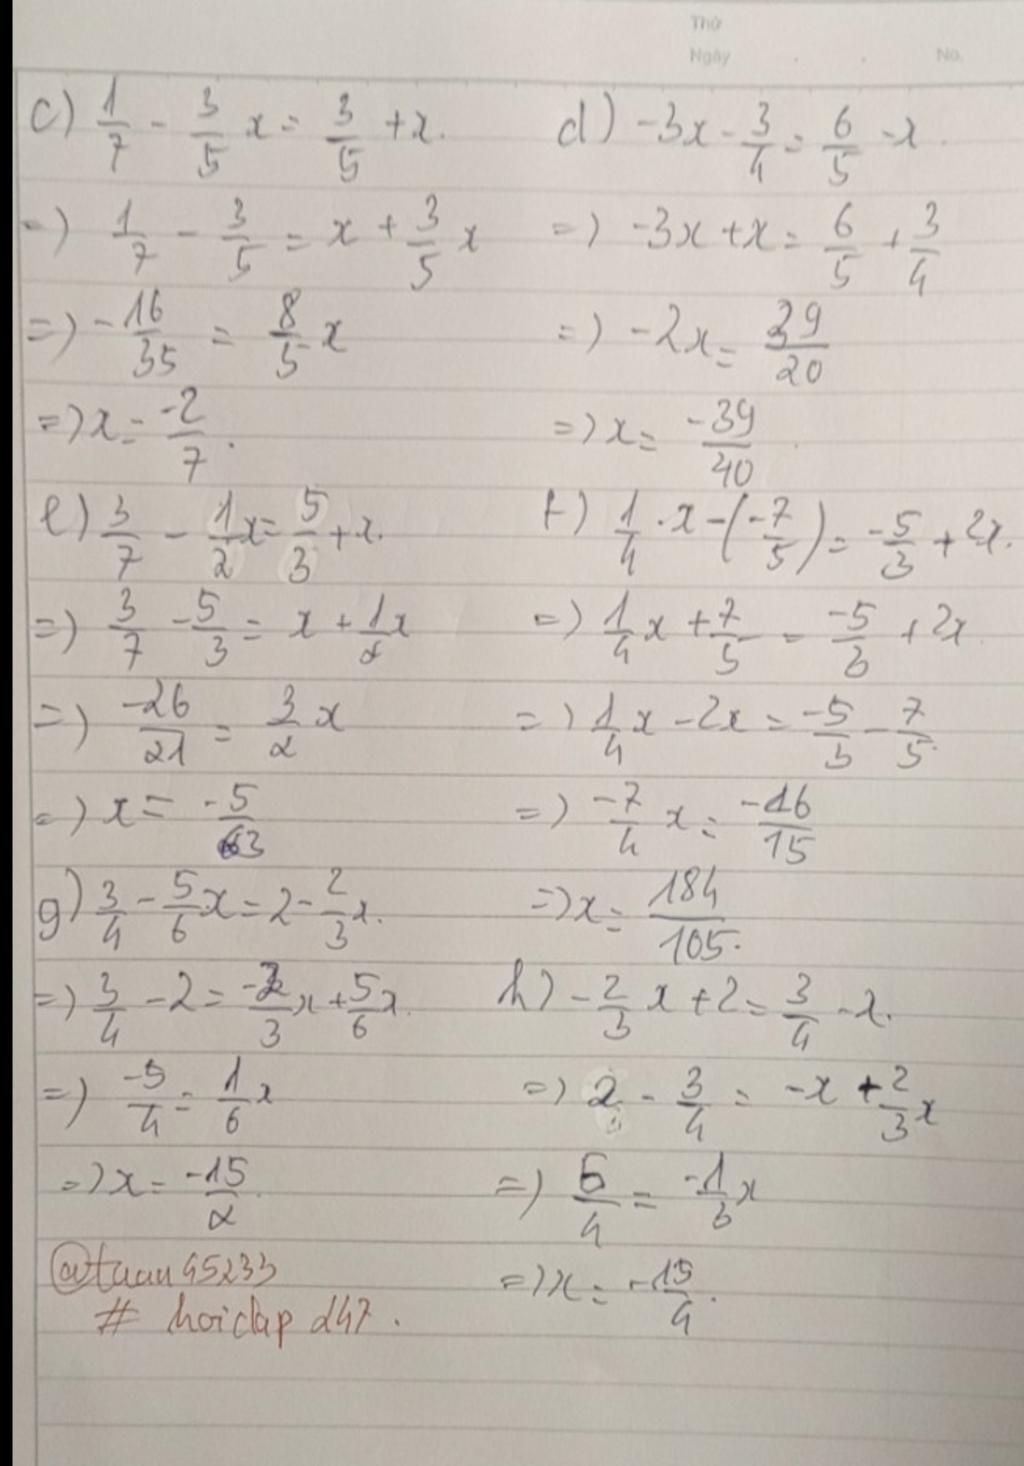 Thứ
Ngày No.
c) 1/7 - 3/5 x = 3/5 + x.
=) 1/7 - 3/5 = x + 3/5 x
=) -16/35 = 8/5 x
=) x = -2/7.
d) -3x - 3/4 = 6/5 - x.
=) -3x + x = 6/5 + 3/4
=) -2x = 39/20
=) x = -39/40
e) 3/7 - 1/2 x = 5/3 + x.
=) 3/7 - 5/3 = x + 1/2 x
=) -26/21 = 3/2 x
=) x = -5/63
f) 1/4 . x - (-7/5) = -5/3 + 2x.
=) 1/4 x + 7/5 = -5/3 + 2x
=) 1/4 x - 2x = -5/3 - 7/5.
=) -7/4 x = -46/15
=) x = 184/105.
g) 3/4 - 5/6 x = 2 - 2/3 x.
=) 3/4 - 2 = -2/3 x + 5/6 x.
=) -5/4 = 1/6 x
=) x = -15/2.
h) -2/3 x + 2 = 3/4 - x.
=) 2 - 3/4 = -x + 2/3 x
=) 5/4 = -1/3 x
=) x = -15/4.
@tuan45233
# hoidap 247.